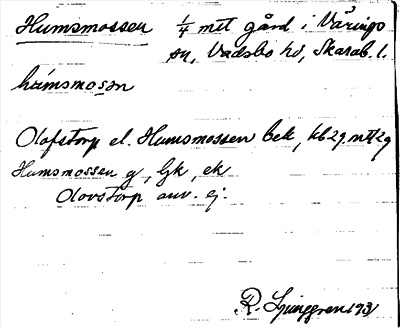 Humsmossen 1/4 mtl gård i Värings
sn, Vadsbo hd, Skarab. l.
hùmsmosɔn
Olofstorp el. Humsmossen bek, kb 29. mtl 29
Humsmossen g, Gk, ek
Olovstorp anv. ej.
R. Ljunggren 193